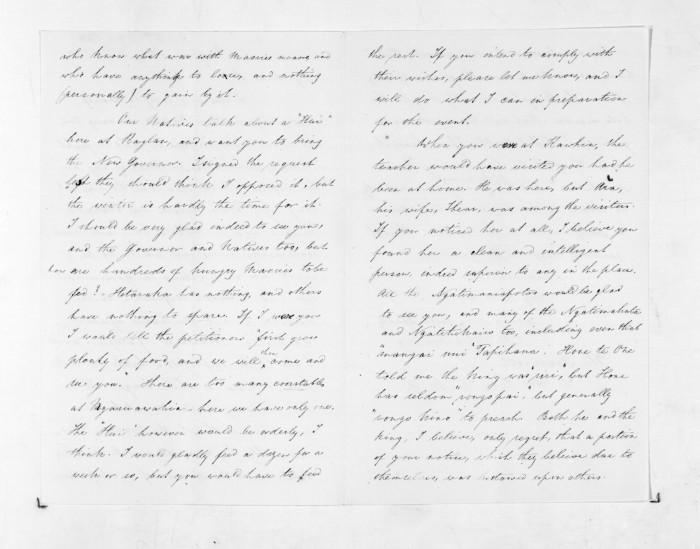 who know what war with Maories means and
who have anything to lose, and nothing
(personally) to gain by it.
Our Natives talk about a "Hui"
here at Raglan, and want you to bring
the New Governor. I signed the request
lest they should think I opposed it, but
the winter is hardly the time for it.
I should be very glad indeed to see you,
and the Governor and Natives too, but
how are hundreds of hungry Maories to be
fed? Hetaraka has nothing, and others
have nothing to spare. If I were you
I would tell the petitioners "first grow
plenty of food, and we will then come and
see you. There are too many constables
at Ngaruawahia - here we have only one.
The "Hui" however would be orderly, I
think. I would gladly feed a dozen for a
week or so, but you would have to find
the rest. If you intend to comply with
their wishes, please let me know, and I
will do what I can in preparation
for the event.
When you were at Kawhia, the
teacher would have visited you had he
been at home. He was here, but
his wife, I hear, was among the visitors.
If you noticed her at all, I believe you
found her a clean and intelligent
person, indeed superior to any in the place.
All the Ngatimaniapotos would be glad
to see you, and many of the Ngatimahuta
and too, including even that
"mangai nui" Tapihana. Hone te One
told me the King was "nui", but Hone
has seldom "rongo pai", but generally
"rongo kino" to preach. Both he and the
King, I believe, only regret, that a portion
of your notice, which they believe due to
themselves, was bestowed upon others.